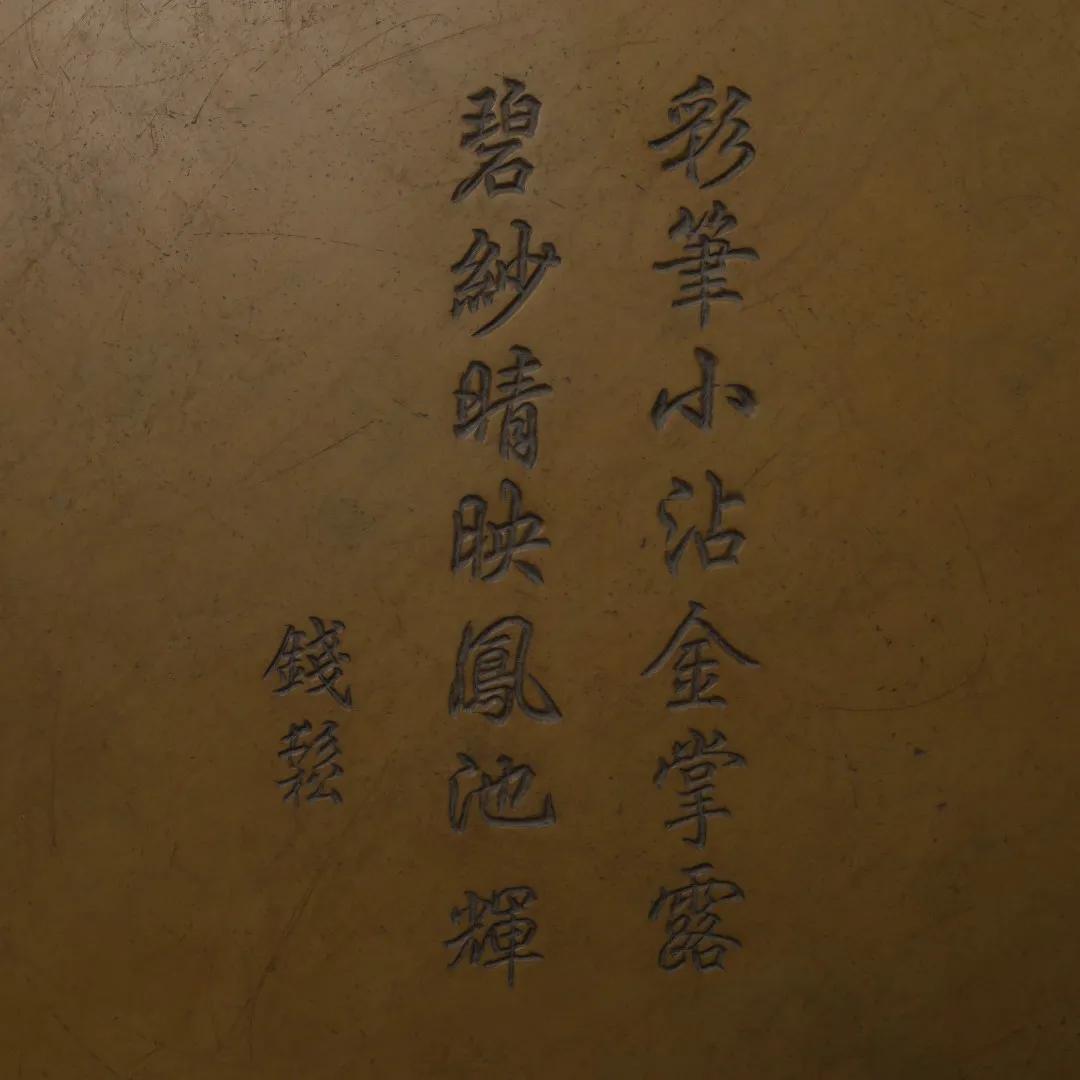 彩筆小沾金掌露
碧紗晴映鳳池輝
錢鬆